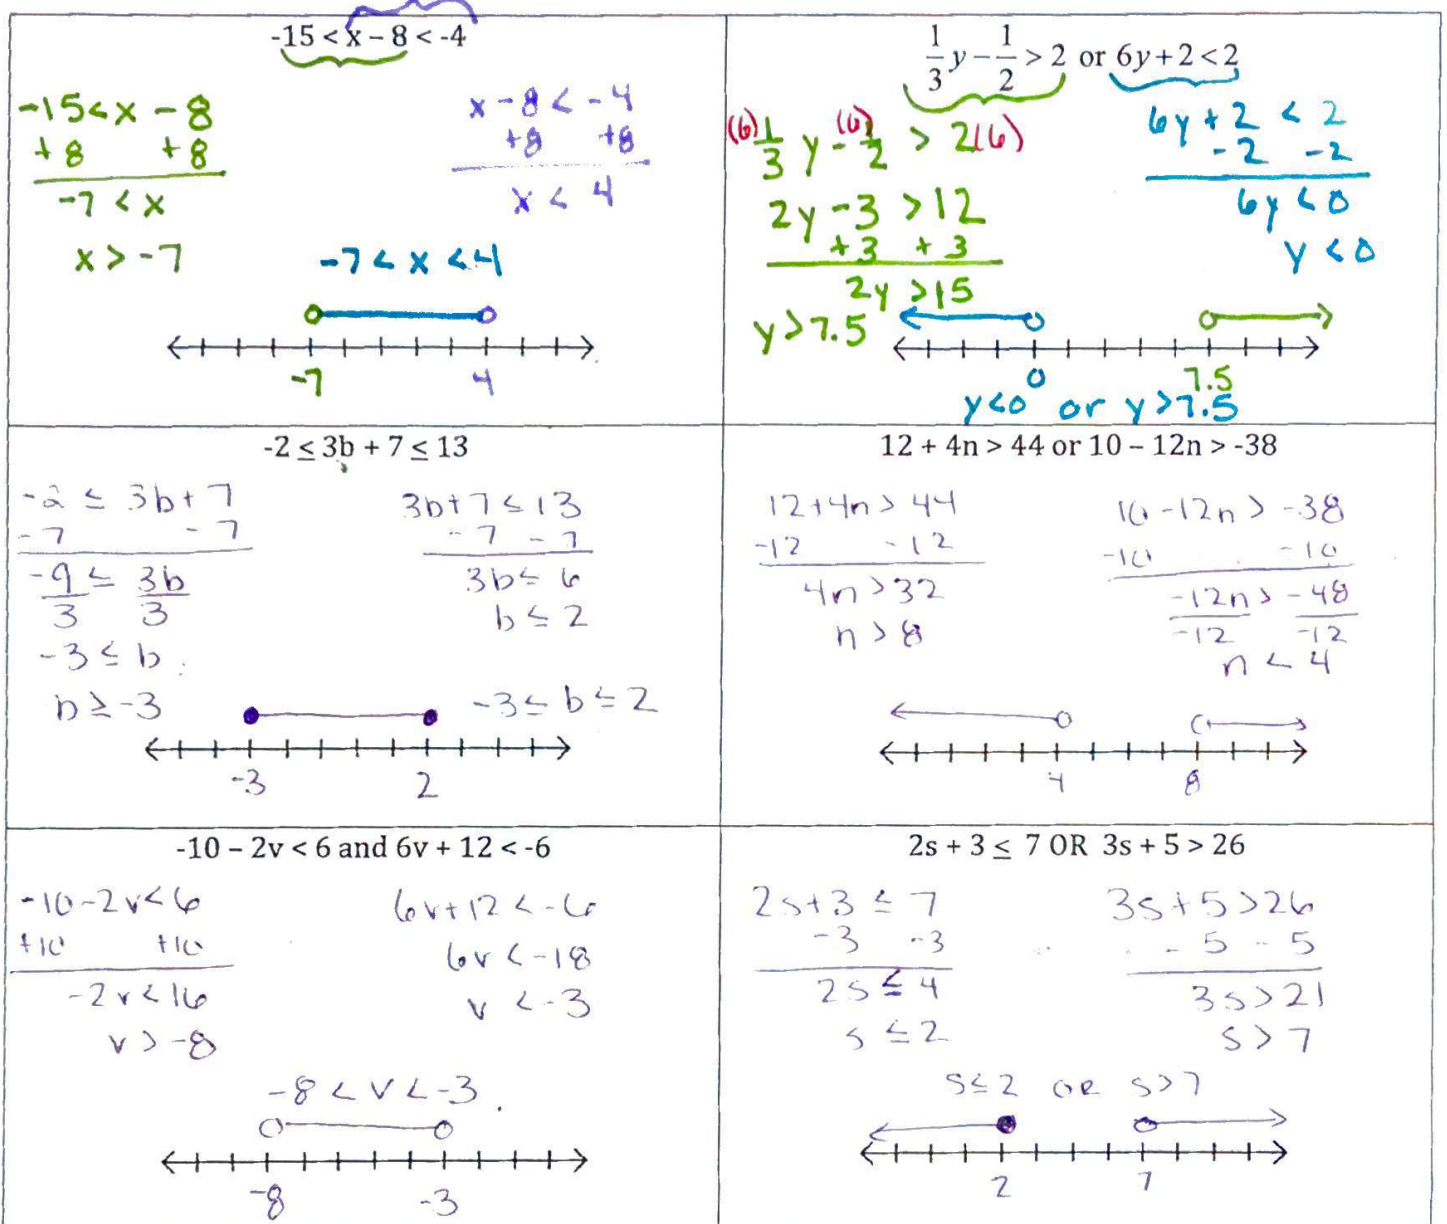 -15 < x – 8 < -4
-15 < x - 8
+8 +8
-7 < x
x > -7
x - 8 < -4
+8 +8
x < 4
-7 < x < 4
-7 4
1/3 y - 1/2 > 2 or 6y + 2 < 2
(6) 1/3 y - (6) 1/2 > 2(6)
2y - 3 > 12
+3 +3
2y > 15
y > 7.5
6y + 2 < 2
-2 -2
6y < 0
y < 0
0 7.5
y < 0 or y > 7.5
-2 ≤ 3b + 7 ≤ 13
-2 ≤ 3b + 7
-7 -7
-9/3 ≤ 3b/3
-3 ≤ b
b ≥ -3
3b + 7 ≤ 13
-7 -7
3b ≤ 6
b ≤ 2
-3 ≤ b ≤ 2
-3 2
12 + 4n > 44 or 10 – 12n > -38
12 + 4n > 44
-12 -12
4n > 32
n > 8
10 - 12n > -38
-10 -10
-12n/-12 > -48/-12
n < 4
4 8
-10 – 2v < 6 and 6v + 12 < -6
-10 - 2v < 6
+10 +10
-2v < 16
v > -8
6v + 12 < -6
6v < -18
v < -3
-8 < v < -3
-8 -3
2s + 3 ≤ 7 OR 3s + 5 > 26
2s + 3 ≤ 7
-3 -3
2s ≤ 4
s ≤ 2
3s + 5 > 26
-5 -5
3s > 21
s > 7
s ≤ 2 OR s > 7
2 7